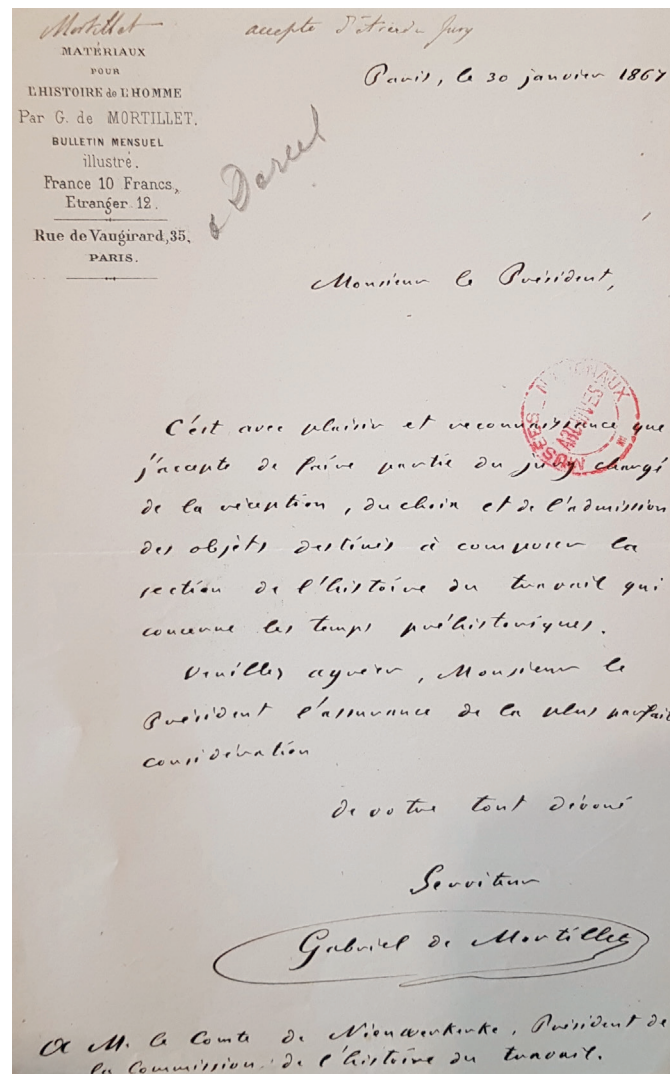 Mortillet
accepte d'être du Jury
MATÉRIAUX
POUR
L'HISTOIRE de L'HOMME
Par G. de MORTILLET.
BULLETIN MENSUEL
illustré.
France 10 Francs,
Etranger 12.
Rue de Vaugirard, 35,
PARIS.
Paris, le 30 janvier 1867
a Darcel
Monsieur le Président,
MUSÉES NATIONAUX
ARCHIVES
C'est avec plaisir et reconnaissance que
j'accepte de faire partie du jury chargé
de la réception, du choix et de l'admission
des objets destinés à composer la
section de l'histoire du travail qui
concerne les temps préhistoriques.
Veuillez agréer, Monsieur le
Président l'assurance de la plus parfait
considération
de votre tout dévoué
Serviteur
Gabriel de Mortillet
A M. le Comte de Nieuwerkerke, Président de
la Commission de l'histoire du travail.